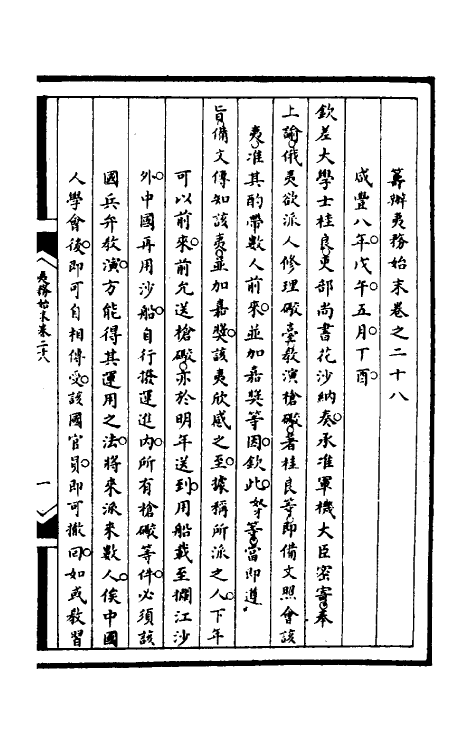 籌辦夷務始末卷之二十八
咸豐八年。戊午五月。丁酉。
欽差大學士桂良。吏部尚書花沙納奏。承准軍機大臣密寄。奉
上諭。俄夷欲派人修理礮臺。教演槍礮。著桂良等。即備文照會該
夷。准其酌帶數人前來。並加嘉獎等因。欽此。奴才等。當即遵
旨。備文傳知該夷。並加嘉獎。該夷欣感之至。據稱所派之人。下年
可以前來。前允送槍礮。亦於明年送到。用船載至攔江沙
外。中國再用沙船。自行撥運進內。所有槍礮等件。必須該
國兵弁教演。方能得其運用之法。將來派來數人。俟中國
人學會後。即可自相傳受。該國官員。即可撤回。如或教習
夷務始末卷二十八
一